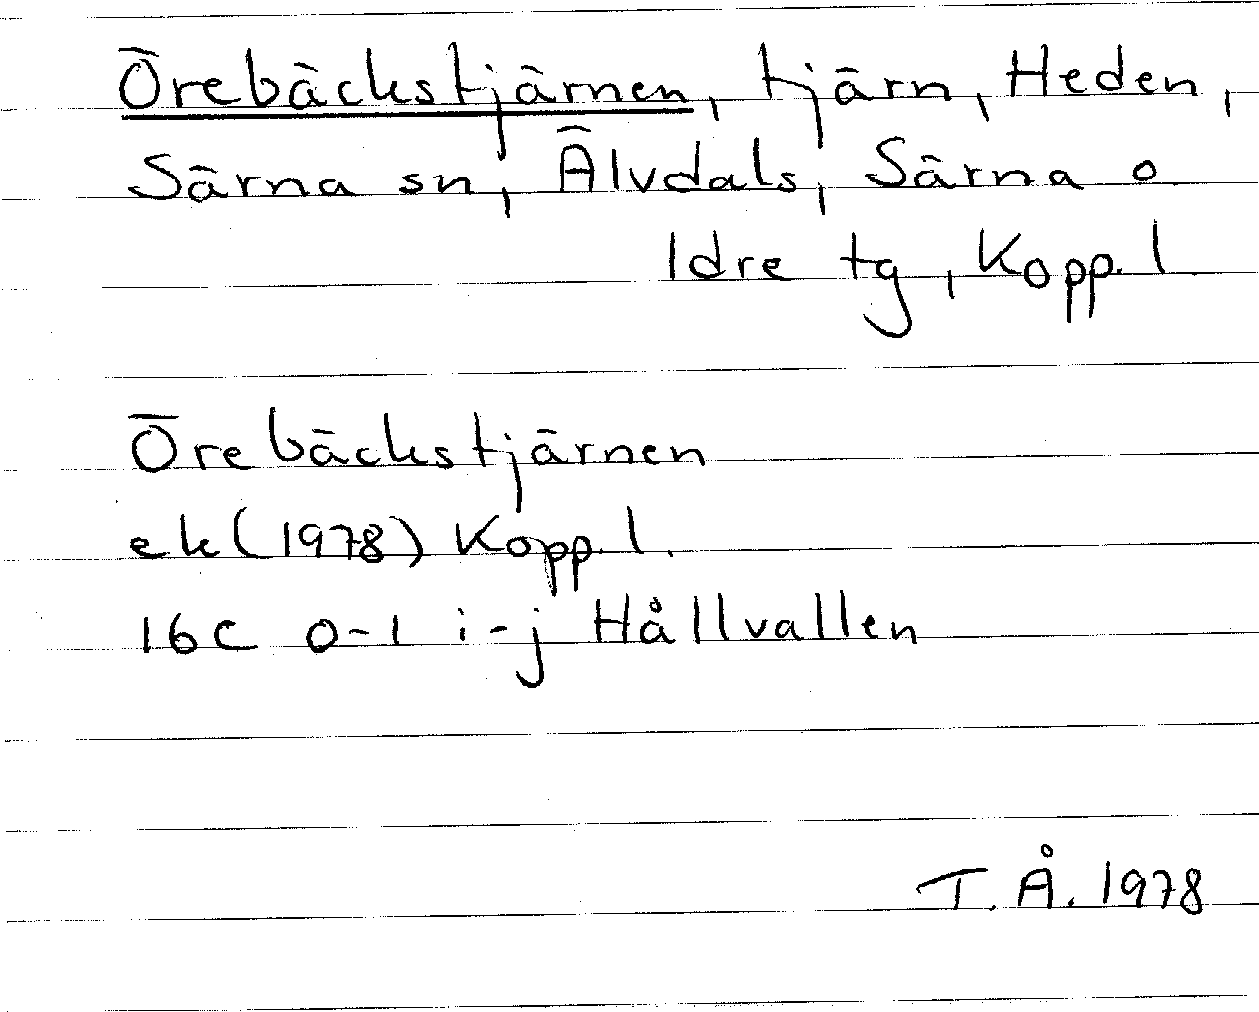 Örebäckstjärnen, tjärn, Heden,
Särna sn, Älvdals, Särna o
Idre tg, Kopp. l
Örebäckstjärnen
ek (1978) Kopp. l.
16C 0-1 i-j Hållvallen
T. Å. 1978